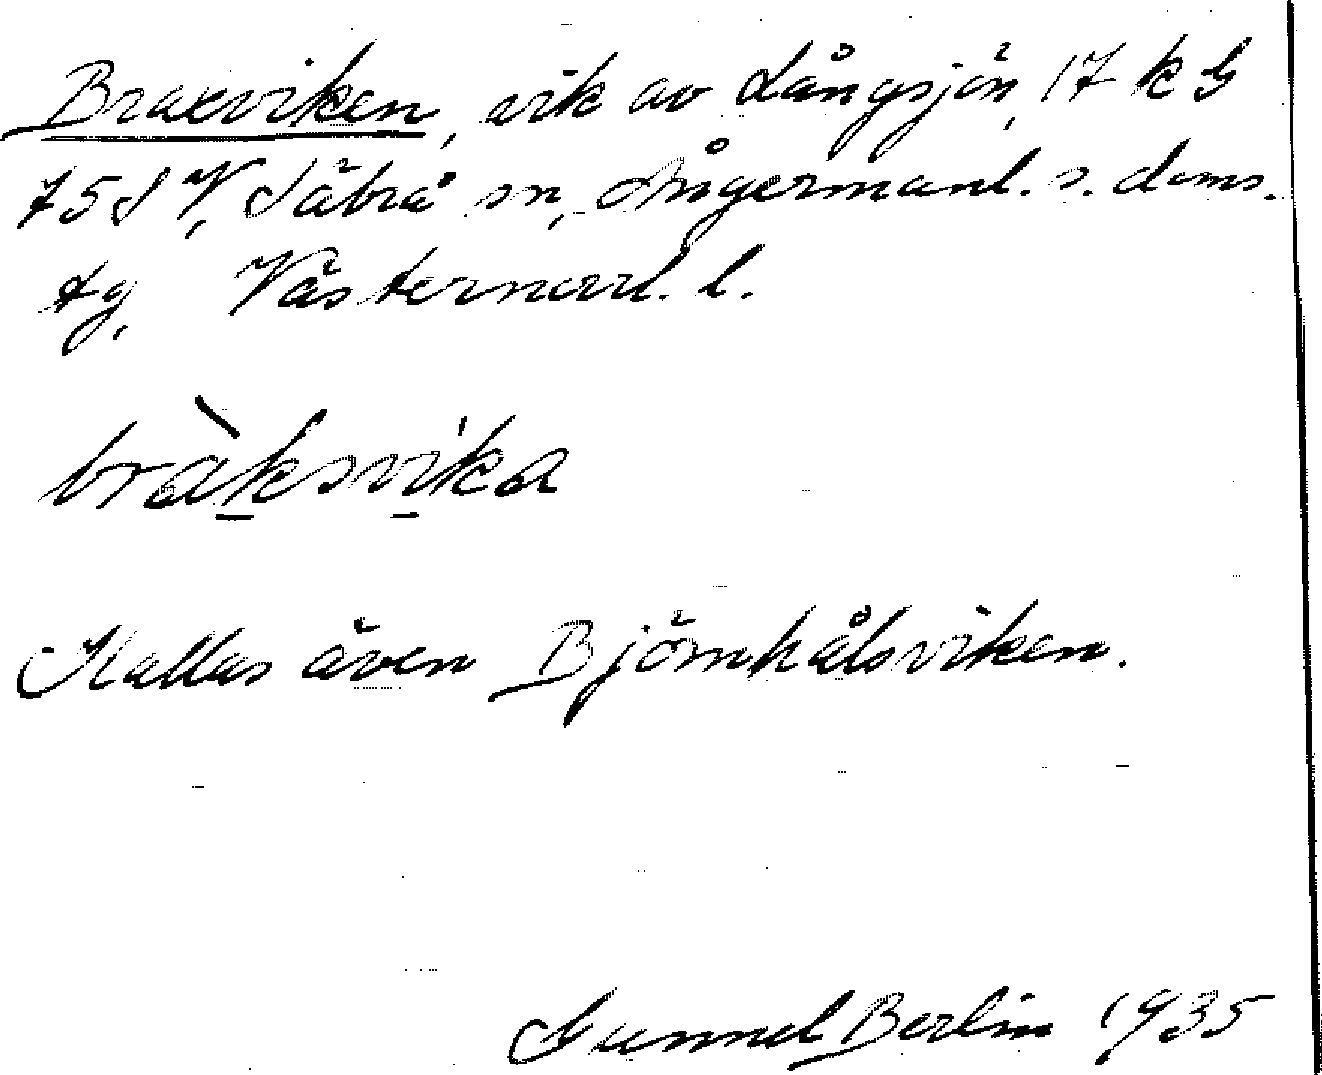 Braxviken, vik av Långsjön, 17 k G
75 S V, Säbrå sn, Ångermanl. s. doms.
tg, Västernorrl. l.
bràksvi̍ka
Kallas även Björnhålsviken.
Gunnel Berlin 1935